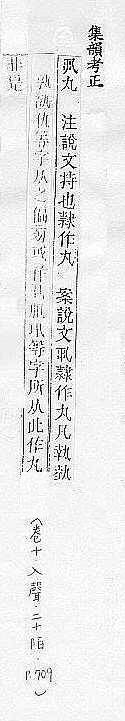 集韻考正
丮丸 注說文持也隸作丸 案說文丮隸作丸凡執埶
孰
等字从之偏旁或作
等字所从此作丸
非是
(卷十·入聲·二十陌·P.709)